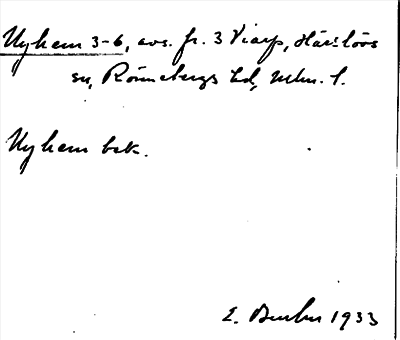 Nyhem 3-6, avs. fr. 3 Viarp, Härslövs
sn, Rönnebergs hd, Mlm. l.
Nyhem bek.
E. 1933